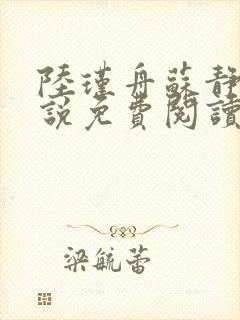 陸瑾舟蘇靜
說免費閱讀
梁毓蕾